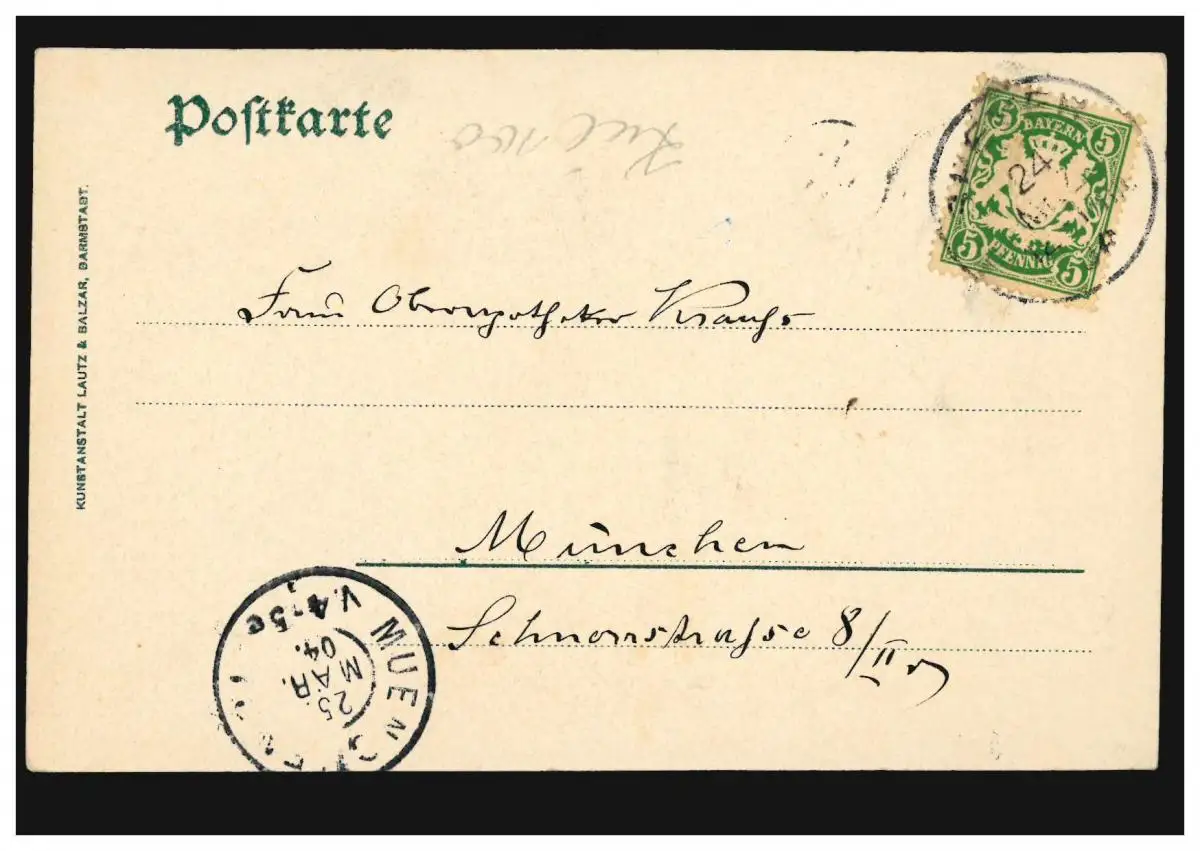 Postkarte
5 BAYERN 5
24
5 PFENNIG 5
KUNSTANSTALT LAUTZ & BALZAR, DARMSTADT.
Frau Oberapotheker Krauss
München
Schnorrstrasse 8/II r
MUENCHEN
V.4-5
25
MAR.
04.